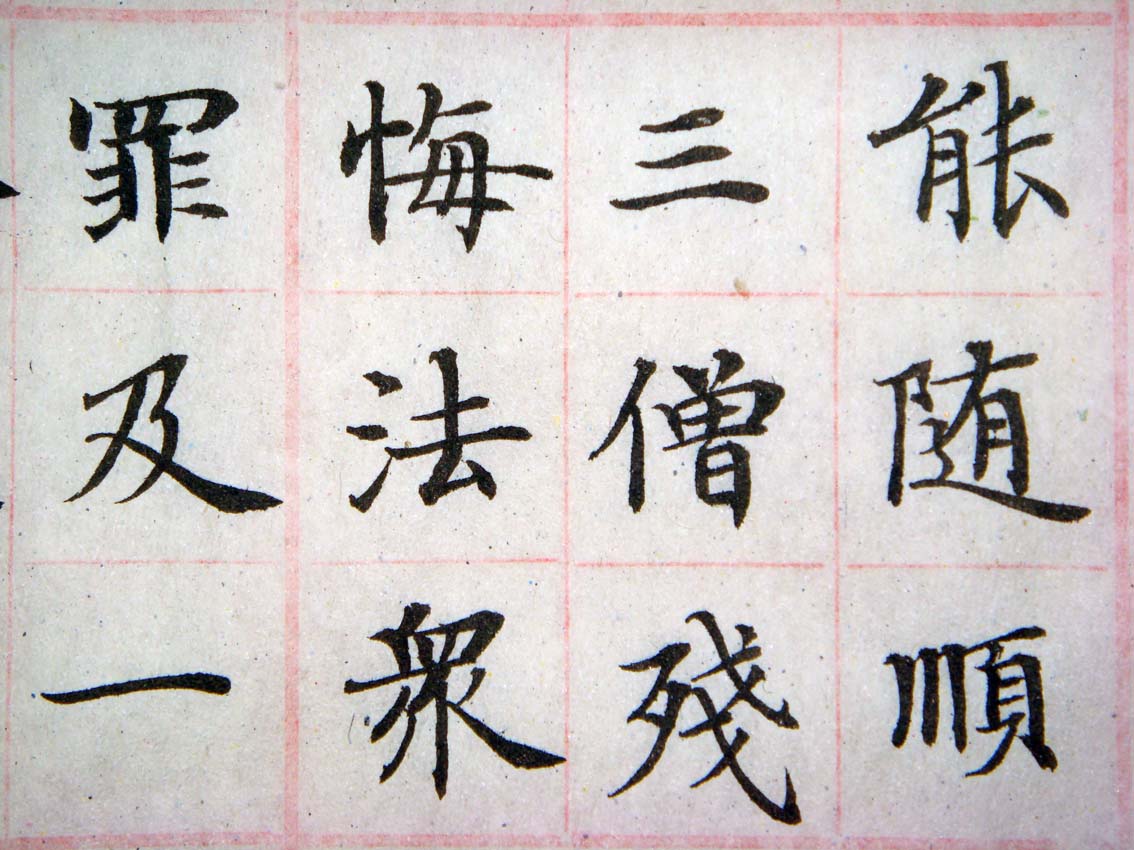 能随順
三僧殘
悔法衆
罪及一